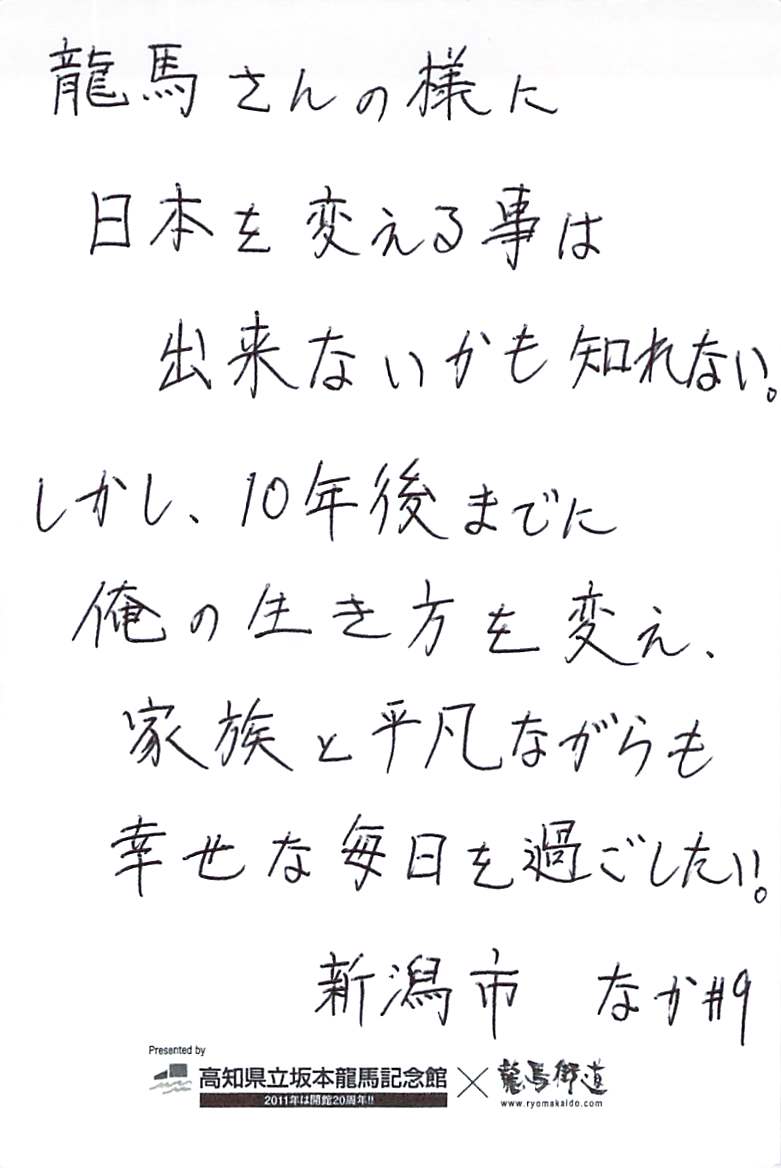 龍馬さんの様に
日本を変える事は
出来ないかも知れない。
しかし、10年後までに
俺の生き方を変え、
家族と平凡ながらも
幸せな毎日を過ごしたい。
新潟市 なか#9
Presented by
高知県立坂本龍馬記念館 × 龍馬街道
2011年は開館20周年!!
www.ryomakaido.com